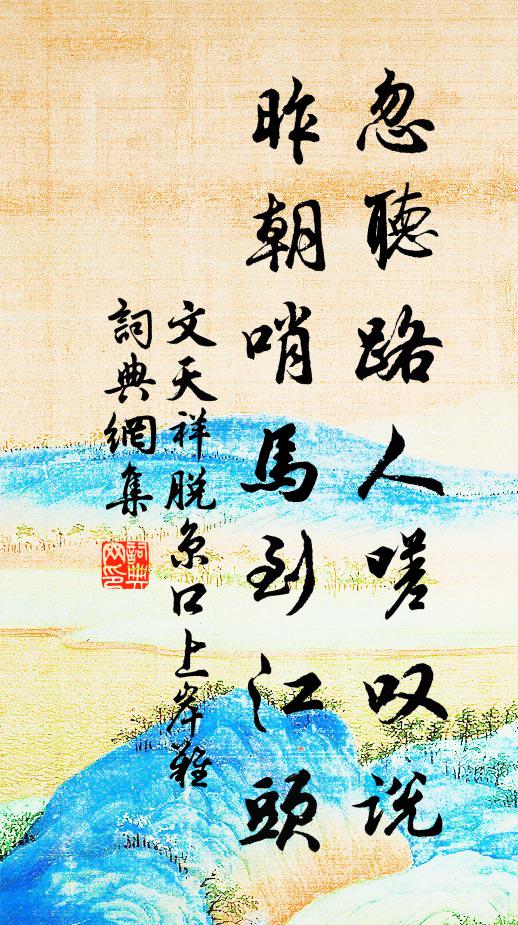 忽聽路人嗟叹説
昨朝哨馬到江頭
文天祥脱京口上岸難
詞典網集
詞典网印